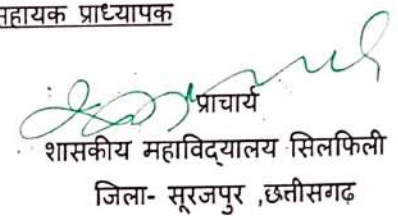 सहायक प्राध्यापक
प्राचार्य
शासकीय महाविद्यालय सिलफिली
जिला- सूरजपुर ,छत्तीसगढ़